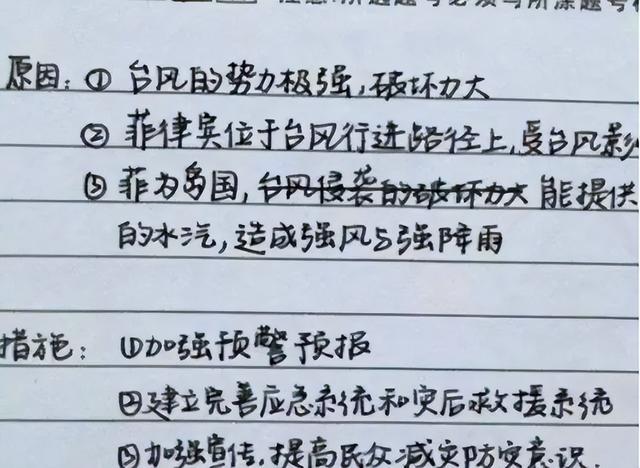 原因：① 台风的势力极强，破坏力大
② 菲律宾位于台风行进路径上，受台风影
③ 菲为岛国，台风侵袭的破坏力大 能提供
的水汽，造成强风与强降雨
措施：①加强预警预报
②建立完善应急系统和灾后救援系统
③加强宣传，提高民众减灾防灾意识.